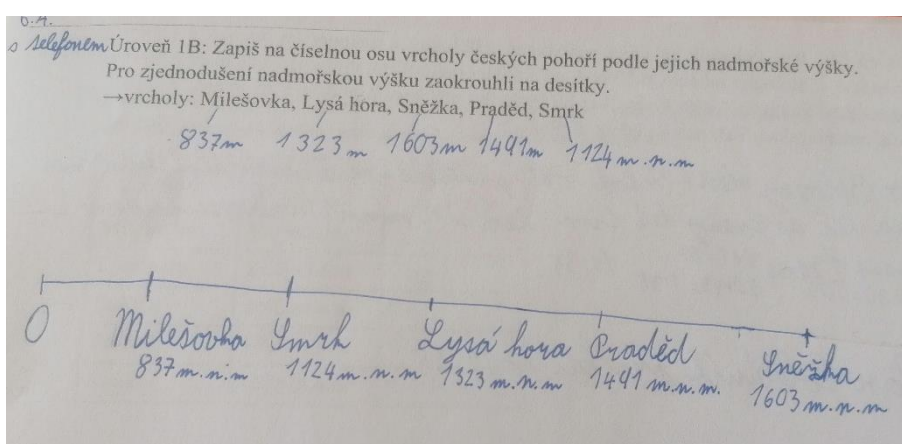 s telefonem Úroveň 1B: Zapiš na číselnou osu vrcholy českých pohoří podle jejich nadmořské výšky.
Pro zjednodušení nadmořskou výšku zaokrouhli na desítky.
→vrcholy: Milešovka, Lysá hora, Sněžka, Praděd, Smrk
837m 1323m 1603m 1491m 1124m.n.m
0 Milešovka Smrk Lysá hora Praděd Sněžka
837m.n.m 1124m.n.m 1323m.n.m 1491m.n.m. 1603m.n.m